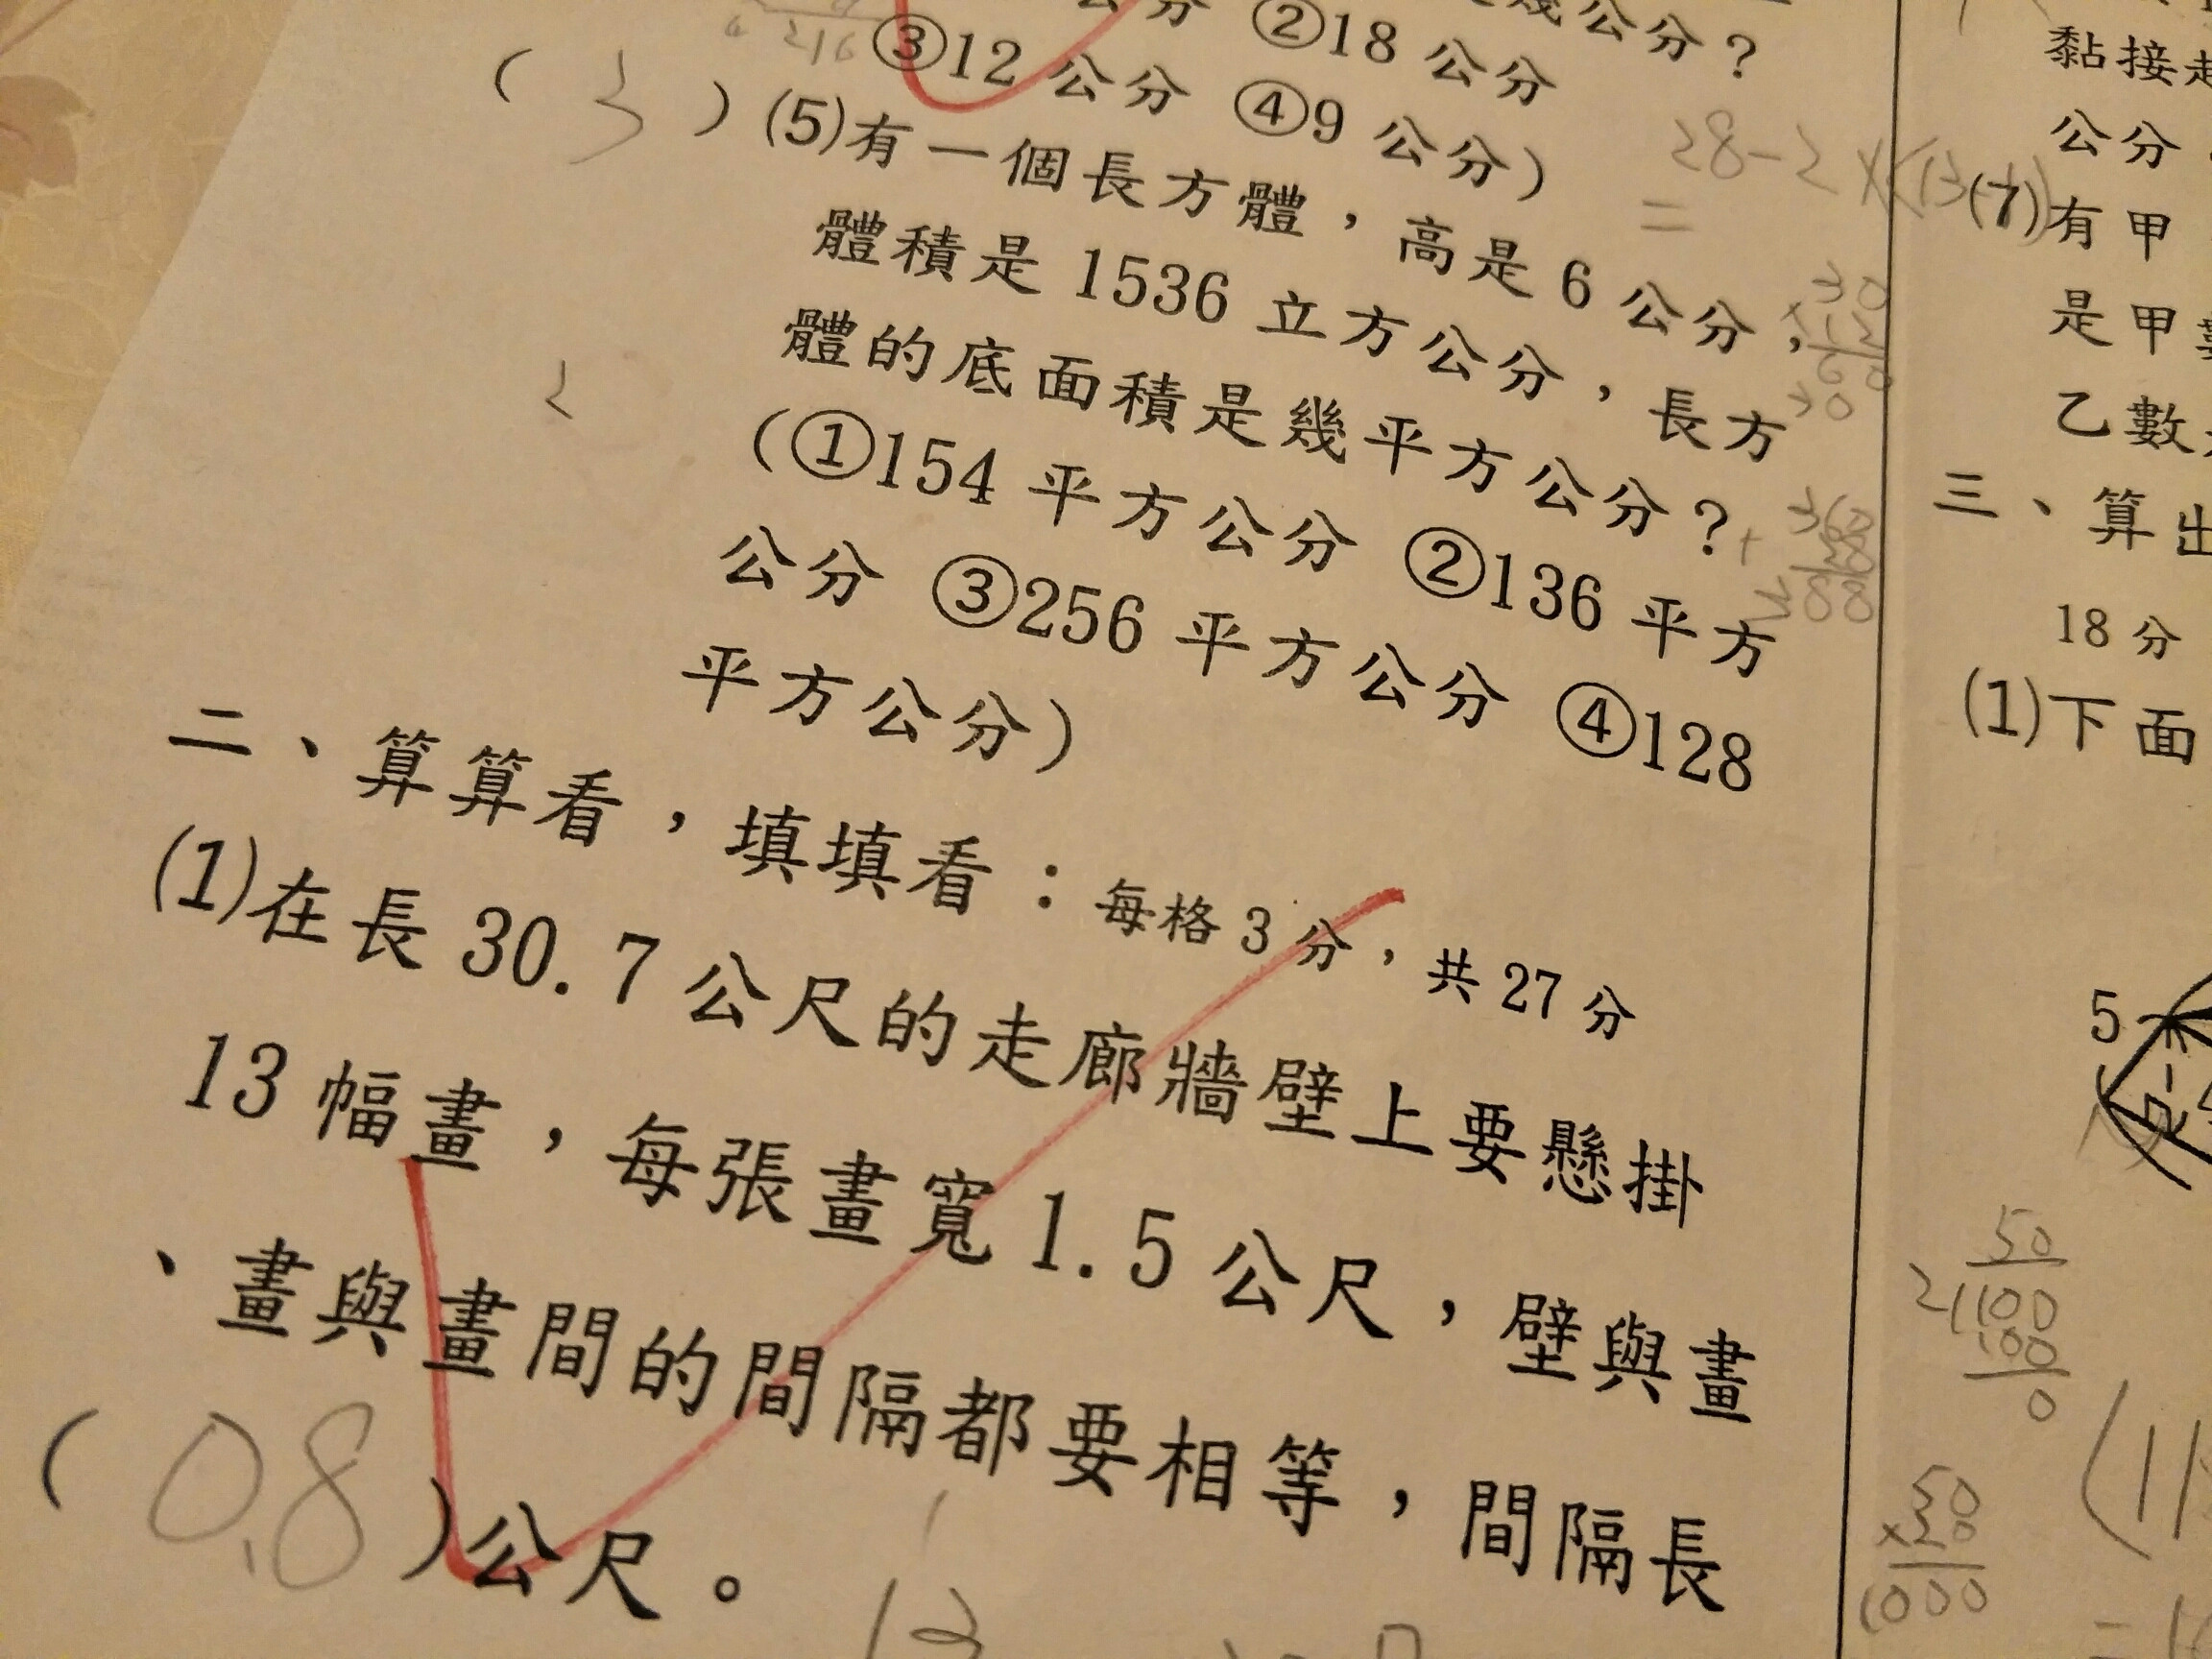 公分 ②18 公分
③12 公分 ④9 公分)
幾公分?
216
( 3 ) (5)有一個長方體，高是 6 公分，
體積是 1536 立方公分，長方
體的底面積是幾平方公分?
(①154 平方公分 ②136 平方
公分 ③256 平方公分 ④128
平方公分)
二、算算看，填填看：每格 3 分，共 27 分
(1)在長 30.7 公尺的走廊牆壁上要懸掛
13 幅畫，每張畫寬 1.5 公尺，壁與畫
、畫與畫間的間隔都要相等，間隔長
( 0.8 )公尺。
黏接
公分
(7)有甲
是甲
乙數
三、算出
18 分
(1)下面
5
50
2 100
100
0
50
×20
1000